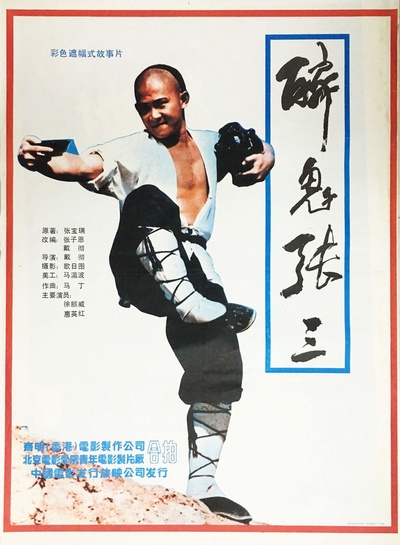 彩色遮幅式故事片
醉鬼张三
原著：张宝瑞
改编：张子恩
戴彻
导演：戴彻
摄影：歌日图
美工：马温波
作曲：马丁
主要演员：
徐郎威
惠英红
(香港)電影製作公司
北京電影學院青年電影製片廠
合拍
中國電影发行放映公司发行